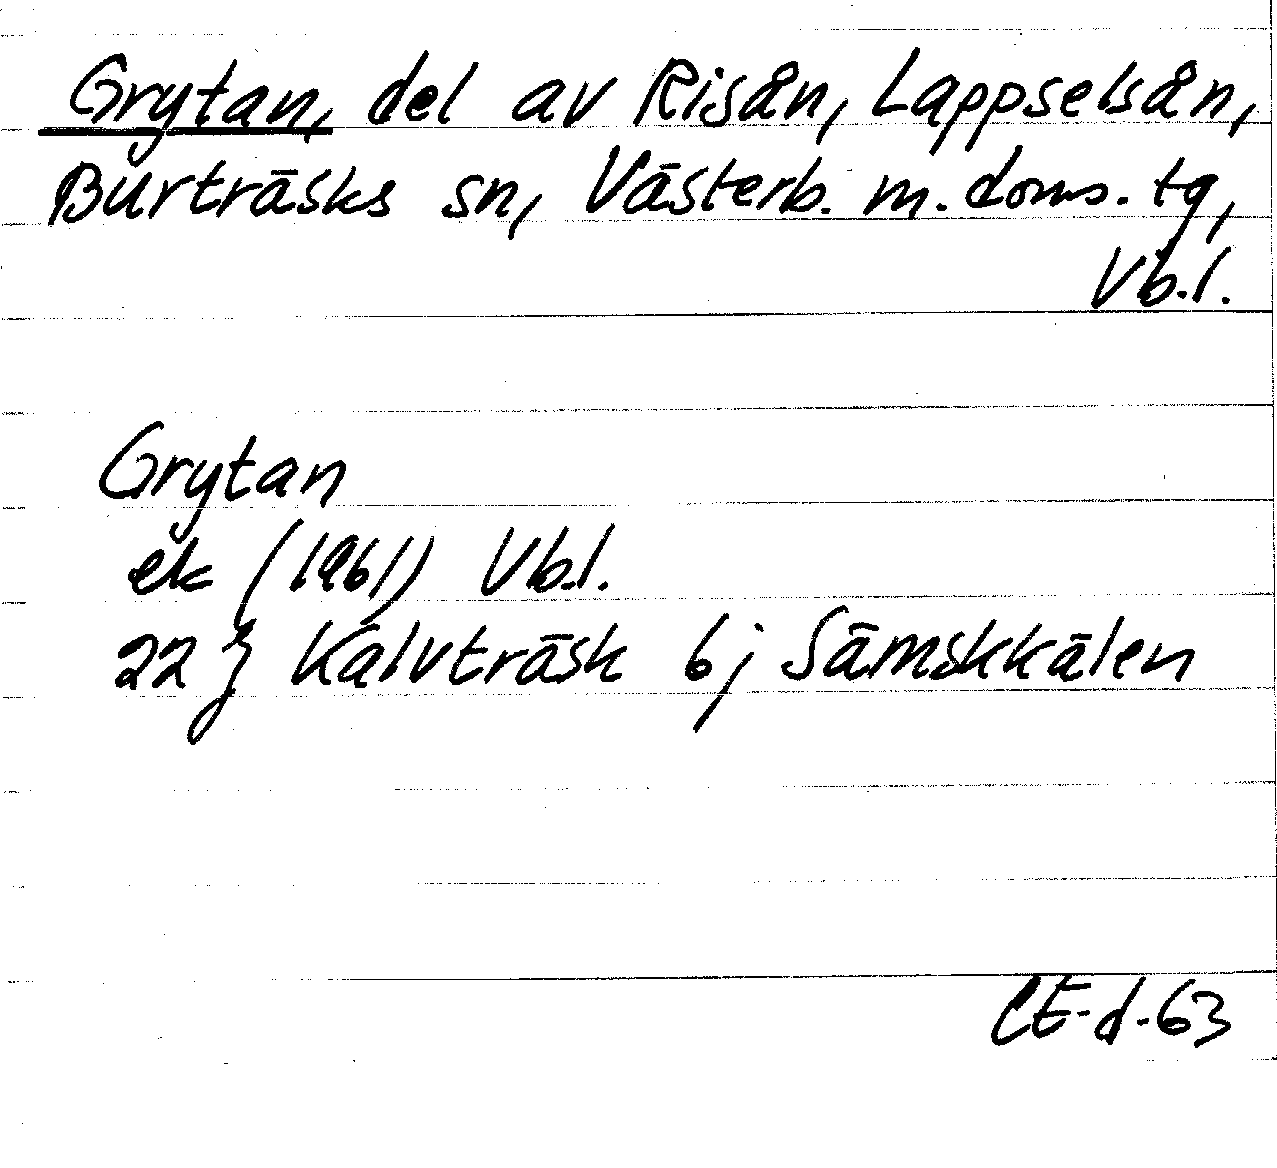 Grytan, del av Risån, Lappselsån,
Burträsks sn, Västerb. m. doms. tg,
Vb.l.
Grytan
ek (1961) Vb.l.
22 j Kalvträsk 6j Sämskkälen
CE-d-63